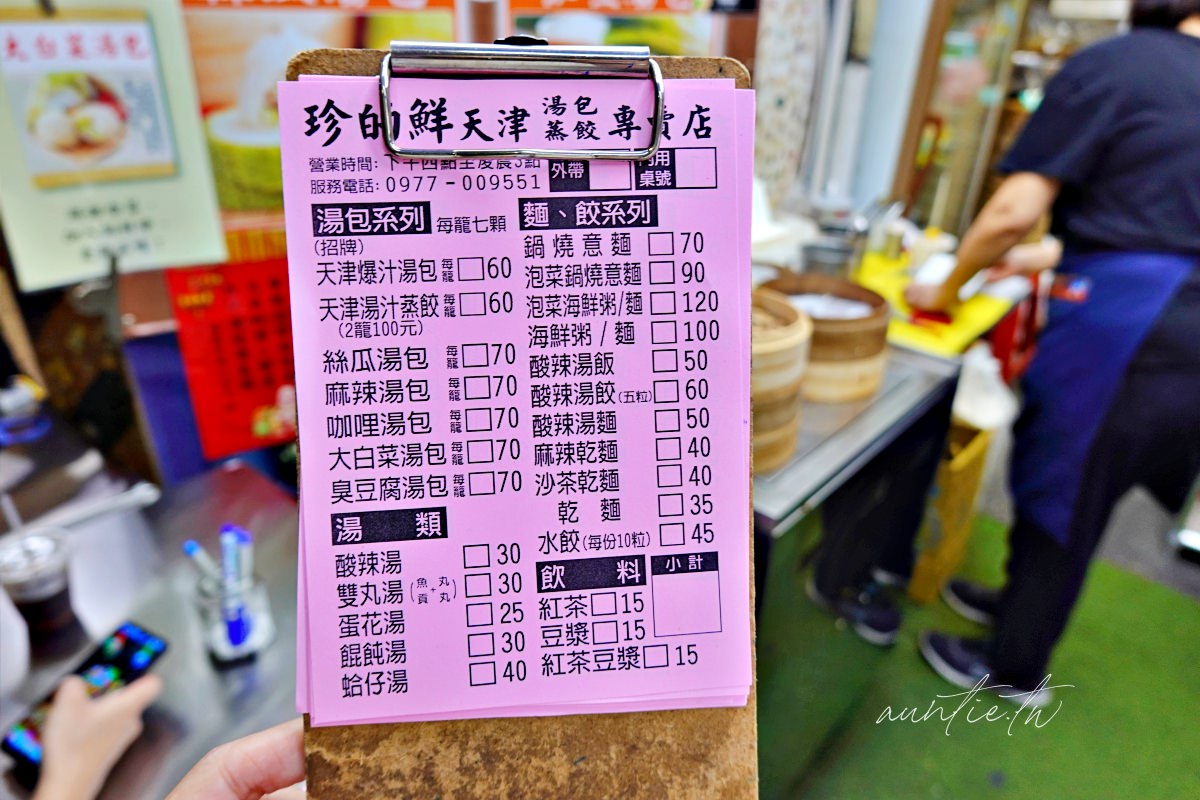 大白菜湯包
珍的鮮天津 湯包 蒸餃 專賣店
營業時間: 下午四點至凌晨3點
服務電話: 0977-009551
外帶
內用
桌號
湯包系列 每籠七顆
(招牌)
天津爆汁湯包 每籠 60
天津湯汁蒸餃 每籠 60
(2籠100元)
絲瓜湯包 每籠 70
麻辣湯包 每籠 70
咖哩湯包 每籠 70
大白菜湯包 每籠 70
臭豆腐湯包 每籠 70
湯類
酸辣湯 30
雙丸湯(魚丸+貢丸) 30
蛋花湯 25
餛飩湯 30
蛤仔湯 40
麵、餃系列
鍋燒意麵 70
泡菜鍋燒意麵 90
泡菜海鮮粥/麵 120
海鮮粥/麵 100
酸辣湯飯 50
酸辣湯餃(五粒) 60
酸辣湯麵 50
麻辣乾麵 40
沙茶乾麵 40
乾麵 35
水餃(每份10粒) 45
飲料
紅茶 15
豆漿 15
紅茶豆漿 15
小計
auntie.tw